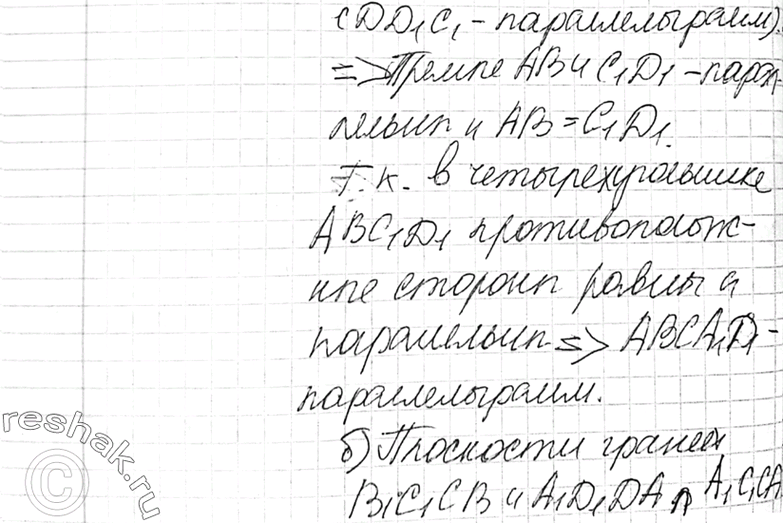 (DD₁C₁ - параллелограмм).
=> Прямые AB и C₁D₁ - парал-
лельны и AB = C₁D₁.
Т.к. в четырехугольнике
ABC₁D₁ противополож-
ные стороны равны и
параллельны => ABCA₁D₁ -
параллелограмм.
б) Плоскости граней
B₁C₁CB и A₁D₁DA A₁C₁CA
reshak.ru
©